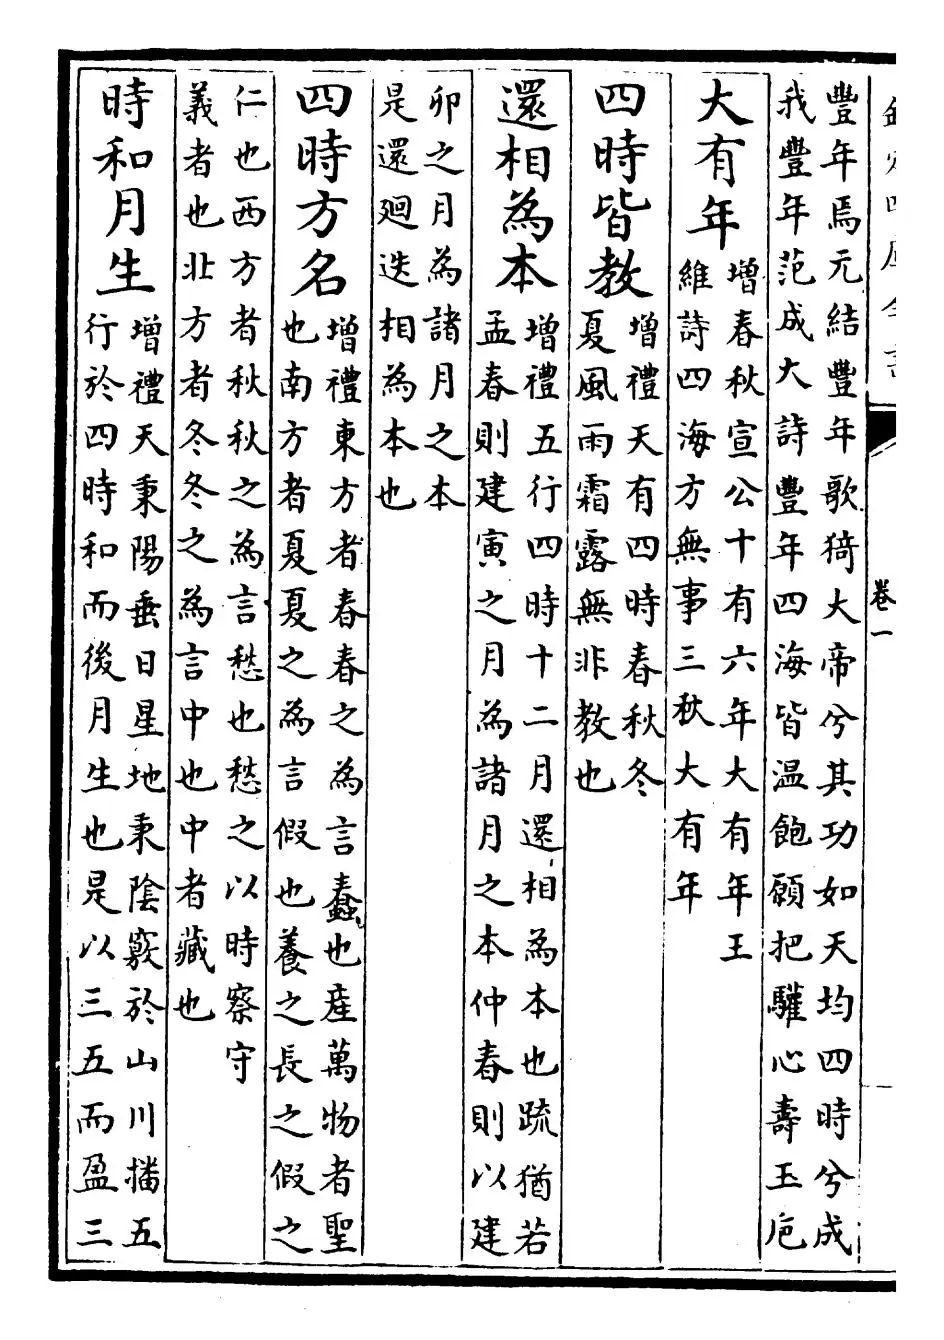 豐年焉元結豐年歌猗大帝兮其功如天均四時兮成
我豐年范成大詩豐年四海皆温飽願把驩心壽玉巵
大有年
增春秋宣公十有六年大有年王
維詩四海方無事三秋大有年
四時皆教
增禮天有四時春秋冬
夏風雨霜露無非教也
還相為本
增禮五行四時十二月還相為本也疏猶若
孟春則建寅之月為諸月之本仲春則以建
卯之月為諸月之本
是還迴迭相為本也
四時方名
增禮東方者春春之為言蠢也產萬物者聖
也南方者夏夏之為言假也養之長之假之
仁也西方者秋秋之為言愁也愁之以時察守
義者也北方者冬冬之為言中也中者藏也
時和月生
增禮天秉陽垂日星地秉陰竅於山川播五
行於四時和而後月生也是以三五而盈三
卷一